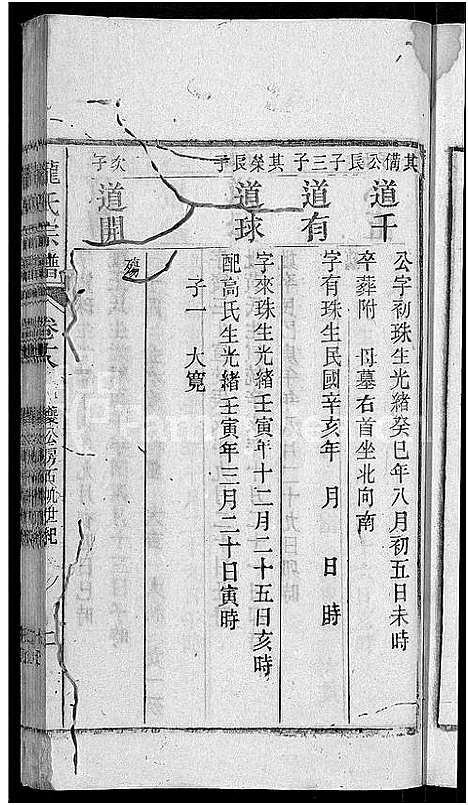 其備公長子
道千
公字初珠生光緒癸巳年八月初五日未時
卒葬附 母墓右首坐北向南
三子
道有
字有珠生民國辛亥年 月 日時
其榮長子
道球
字來珠生光緒壬寅年十二月二十五日亥時
配高氏生光緒壬寅年三月二十日寅時
子一 大寬
次子
道開
殤
龍氏宗譜
卷十八